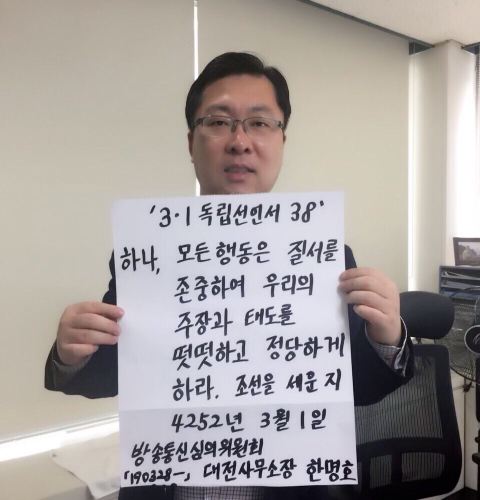 '3·1 독립선언서 38'
하나, 모든 행동은 질서를
존중하여 우리의
주장과 태도를
떳떳하고 정당하게
하라. 조선을 세운 지
4252년 3월 1일
방송통신심의위원회
「190328-」 대전사무소장 한명호